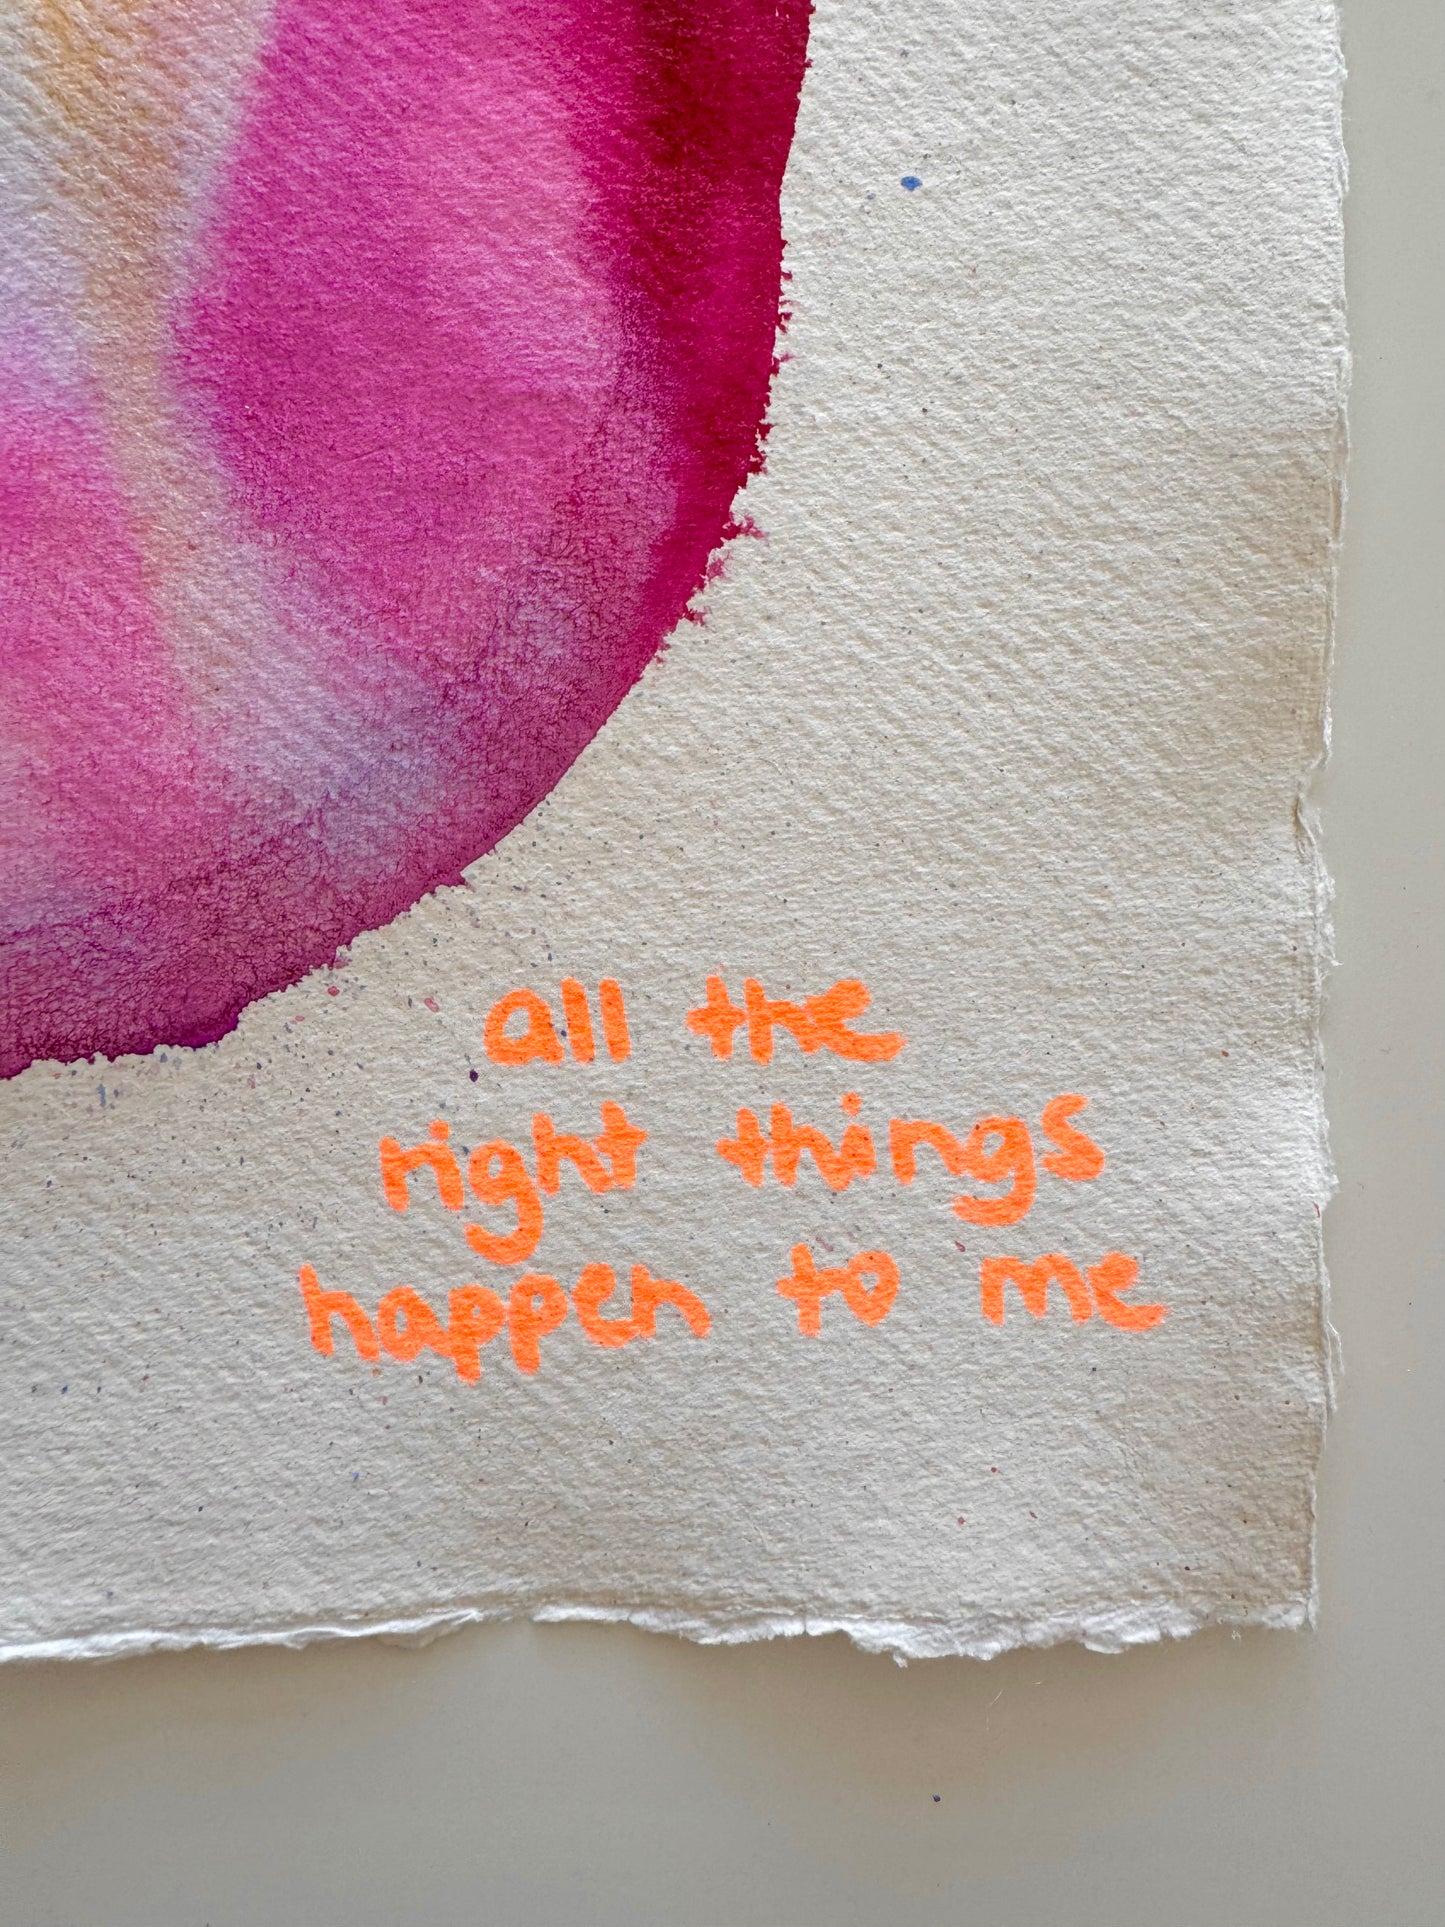 all the
right things
happen to me